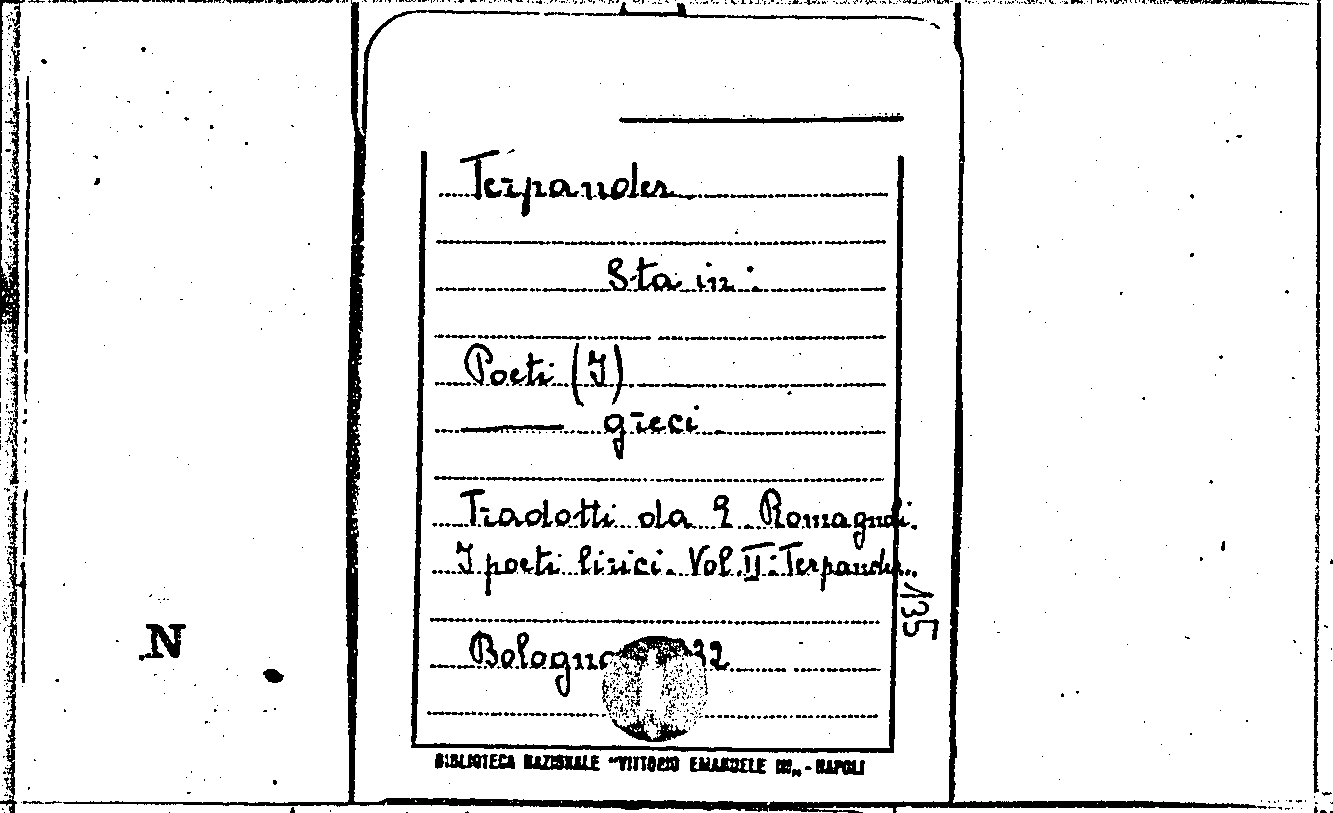 Terpander
Sta in:
Poeti (I)
——— greci
Tradotti da E. Romagnoli.
I poeti lirici. Vol. II: Terpandro..
135
N
Bologna
BIBLIOTECA NAZIONALE "VITTORIO EMANUELE III„ - NAPOLI